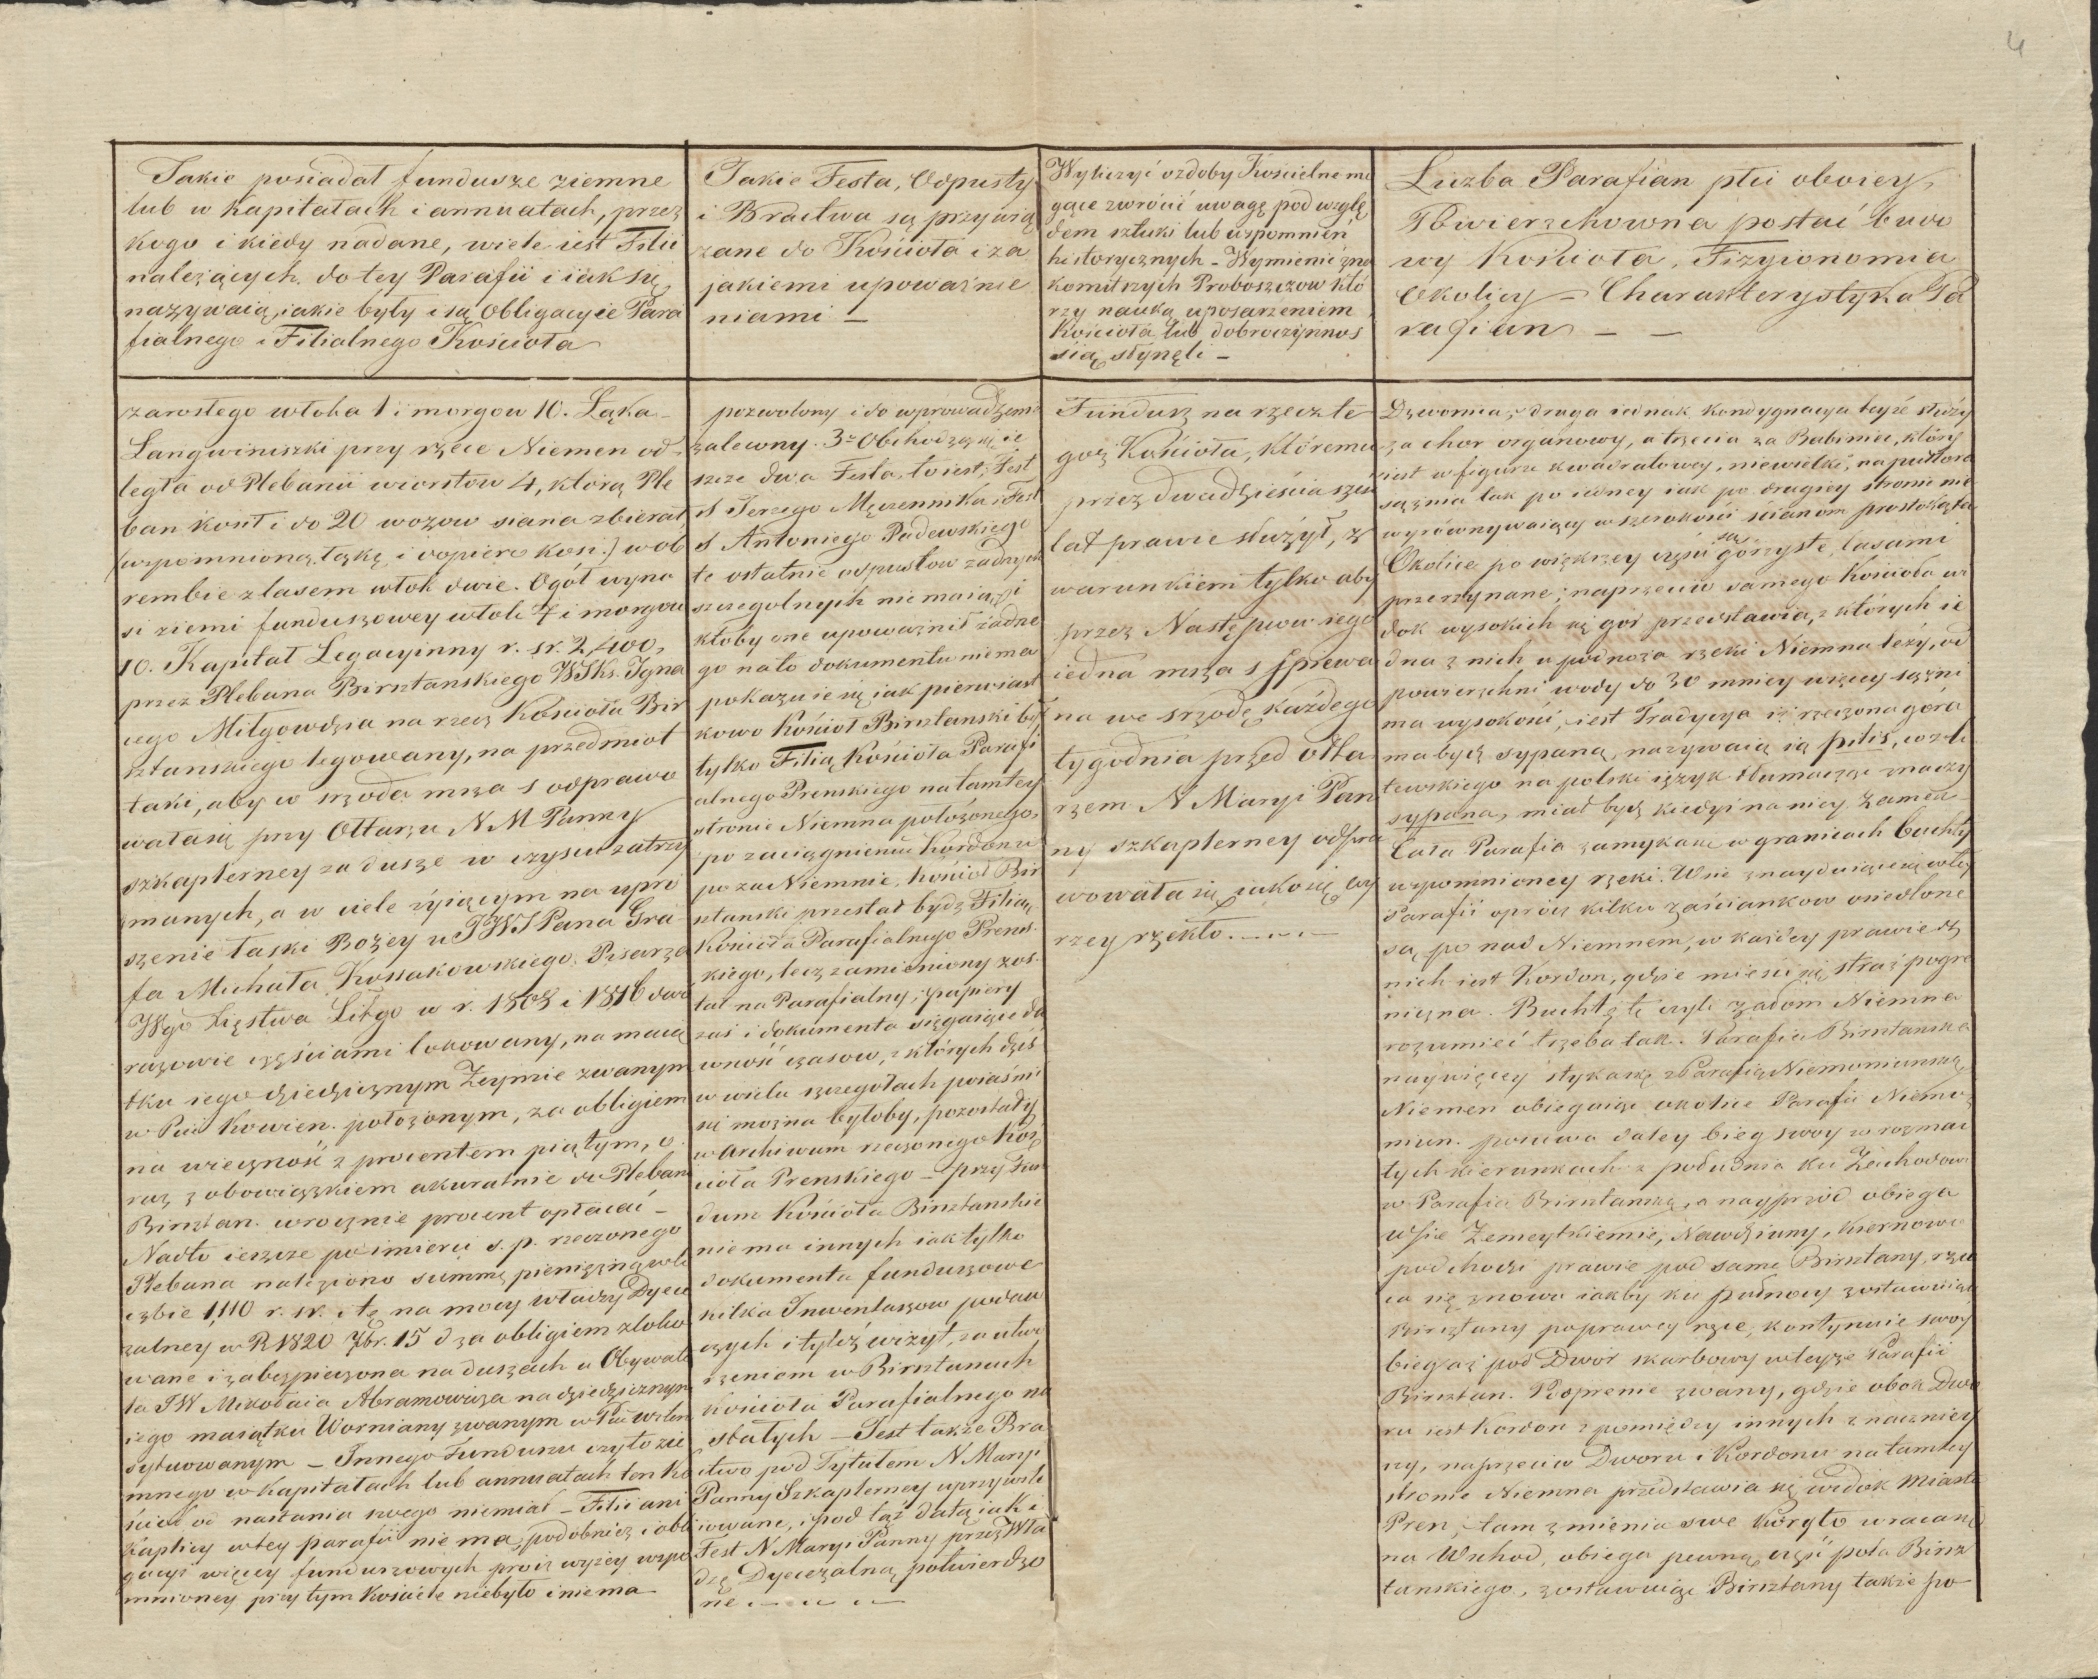 4
Jakie posiadał fundusze ziemne
lub w kapitałach i annuatach, przez
kogo i kiedy nadane, wiele iest Filii
należących do tey Parafii i iak się
nazywaią, iakie były i są Obligacyie Para
fialnego i Filialnego Kościoła
Jakie Festa, Odpusty
i Bractwa są przywią
zane do Kościoła i za
jakiemi upoważnie
niami —
Wyliczyć ozdoby Kościelne mo
gące zwrócić uwagę pod wzglę
dem sztuki lub wspomnień
historycznych – Wymienić zna
komitszych Proboszczow któ
rzy nauką uposarzeniem
Kościoła lub dobroczynnoś
sią słynęli –
Liczba Parafian płci oboiey,
Powierzchowna postać budo
wy Kościoła, Fizyionomia
Okolicy – Charakterystyka Pa
rafian – —
zarosłego włoka 1 i morgow 10. Łąka
Langwiniszki przy rzece Niemen od-
legła od Plebanii wiorstow 4, którą Ple
ban kosił i do 20 wozow siana zbierał,
(wspomnioną łąkę i dopiero kosi.) w ob
rembie z lasem włok dwie. Ogół wyno
si ziemi funduszowey włok 7 i morgow
10. Kapitał Legacyinny r. sr. 2,400,
przez Plebana Birsztanskiego WJks. Igna
cego Miłgowdza na rzecz Kościoła Bir
sztanskiego legowany, na przedmiot
taki, aby w srzodę msza s odprawo
wała się przy Ołtarzu N M Panny
szkaplerney za dusze w czyscu zatrzy
manych, a w ciele żyiącym na upro
szenie łaski Bożey u JWJPana Gra-
fa Michała Kossakowskiego Pisarza
Wgo Xięstwa Litgo w r. 1808 i 1816 dwó
razowie częściami lokowany, na maią
tku iego dziedzicznym Żeymie zwanym
w Pcie Kowien. położonym, za obligiem
na wieczność z procentem piątym, o-
raz z obowiązkiem akuratnie do Pleban
Birsztan. w rocznie procent opłacać –
Nadto ieszcze po imieru s. p. rzeczonego
Plebana naleziono summę pieniężną w li
czbie 1,110 r. sr. Tę na mocy władzy Dyece
zalney w R 1820 7br. 15 d za obligiem zloko
wane i zabezpieczona na duszach u Obywate
la JW Mikołaia Abramowicza na dziedzicznym
iego maiątku Worniany zwanym w Pcie Wilen
sytuowanym – Innego Funduszu czyto zie
mnego w kapitałach lub annuatach ten Ko
ściół od nastania swego niemiał – Filii ani
kaplicy w tey parafii nie ma, podobnież i obli
gacyi więcey funduszowych procz wyżey wspo
mnioney przy tym kościele niebyło i nie ma
pozwolony i do wprowadzenia
zalewny. 3e Obchodzą się ie
szcze dwa Festa, to iest; Fest
S Jerzego Męczennika i Fest
S Antoniego Padewskiego
te ostatnie odpustow żadnych
szczegolnych nie maią, i
ktoby one upoważnił żadne
go na to dokumentu niema
pokazuie się iak pierwiast
kowo Kościoł Birsztanski był
tylko Filią Kościoła Parafi
alnego Prenskiego na tamtey
stronie Niemna położonego,
po zaciągnieniu Kordonu
po za Niemnie, kościoł Bir
sztanski przestał bydz Filią
Kościoła Parafialnego Prens-
kiego, lecz zamieniony zos-
tał na Parafialny; papiery
zaś i dokumenta sięgaiące da
wność czasow, z których dziś
w wielu szczegołach poiaśni
ni można byłoby, pozostały
w Archiwum rzeczonego Koś
cioła Prenskiego – przy fun
dum Kościoła Birsztanskie
niema innych iak tylko
dokumenta funduszowe
kilka Inwentarzow podaw
czych i tyleż wizyt, za utwo
rzeniem w Birsztanach
Kościoła Parafialnego na
stałych – Jest także Bra
ctwo pod Tytułem N Maryi
Panny Szkaplerney uprzywile
iowane, i pod tąż datą iak i
Fest N Maryi Panny przez Wła
dzę Dyecezalną potwierdzo
ne . – . – . –
Fundusz na rzecz te
goż Kościoła, któremu
przez dwadzieścia sześć
lat prawie służył, z
warunkiem tylko aby
przez Następcow iego
iedna msza s sprewa
na we srzodę każdego
tygodnia przed ołta
rzem N Maryi Pan
ny szkaplerney odpra
wowała się, iako się wy
rzey rzekło . – . – . –
Dzwonnica, druga iednak kondygnacya teyże służy
za chor organowy, a trzecia za Babiniec, który
iest w figurze kwadratowey, niewielki, na pułtora
sążnia tak po iedney iak po drugiey stronie nie
wyrównywaiący w szerokości scianom prostokąta
Okolice po większey części są górzyste, lasami
przerzynane; naprzeciw samego Kościoła wi
dok wysokich się gór przedstawia, z których ie
dna z nich u podnoża rzeki Niemna leży, od
powierzchni wody do 30 mniey więcey sążni
ma wysokości, iest Tradycya iż rzeczona góra
ma bydz sypaną, nazywaią ią pilis, w z li
tewskiego na polski ięzyk tłumacząc znaczy
sypana, miał bydz kiedyś na niey Zamek –
Cała Parafia zamyka się w granicach buchty
wspomnioney rzeki. Wsie znayduiące się w tey
Parafii oprócz kilku zaściankow osiedlone
są po nad Niemnem, w każdey prawie z
nich iest Kordon, gdzie mieści się straż pogra
niczna. Buchtę tę czyli zadom Niemna
rozumieć trzeba tak. Parafia Birsztanska
naywięcey styka się z Parafią Niemoniunską
Niemen obiegaiąc okolice Parafii Niemo-
niun. posuwa daley bieg swoy w rozmai
tych kierunkach z południa ku Zachodowi
w Parafia Birsztanską, a nayprzód obiega
wsie Żemeytkiemie, Nawdziuny, Kiernowo
podchodzi prawie pod same Birsztany, rzu
ca się znowu iakby ku północy zostawuiąc
Birsztany poprawey ręce, kontynuie swoy
bieg aż pod Dwór skarbowy w teyże Parafii
Birsztan. Poprenie zwany, gdzie obok Dwo
ru iest Kordon z pomiędzy innych znaczniey
szy, naprzeciw Dworu i Kordonu na tamtey
stronie Niemna przedstawia się widok Miasta
Pren, tam zmienia swe Koryto wracaiąc
na Wschod, obiega pewną część pola Birsz
tanskiego, zostawuiąc Birsztany także po